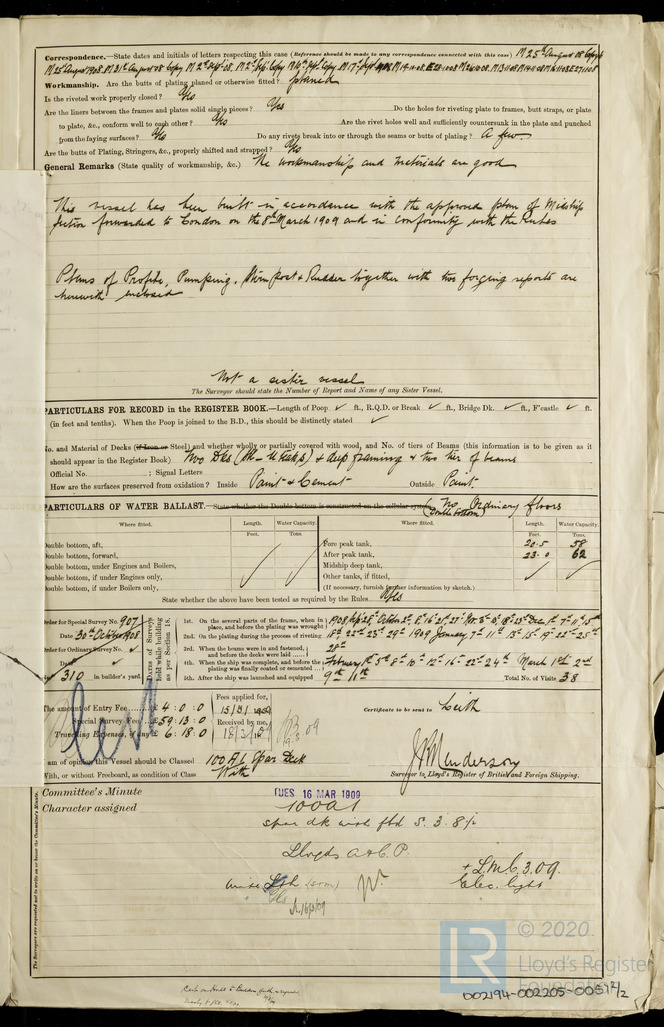 Correspondence.—State dates and initials of letters respecting this case (Reference should be made to any correspondence connected with this case) M 25th August 08 Copy
M 25th August 1908. M 31st August 08 Copy M 2nd Sept 08.
Workmanship. Are the butts of plating planed or otherwise fitted? planed
Is the riveted work properly closed? Yes
Are the liners between the frames and plates solid single pieces? Yes Do the holes for riveting plate to frames, butt straps, or plate
to plate, &c., conform well to each other? Yes Are the rivet holes well and sufficiently countersunk in the plate and punched
from the faying surfaces? Yes Do any rivets break into or through the seams or butts of plating? A few
Are the butts of Plating, Stringers, &c., properly shifted and strapped? Yes
General Remarks (State quality of workmanship, &c.) The workmanship and materials are good
This vessel has been built in accordance with the approved plan of Midship
Section forwarded to London on the 8th March 1909 and in conformity with the Rules
Plans of Profile, Pumping, Stern post & Rudder together with two forging reports are
herewith enclosed
Not a sister vessel
The Surveyor should state the Number of Report and Name of any Sister Vessel.
PARTICULARS FOR RECORD in the REGISTER BOOK.—Length of Poop ✓ ft., R.Q.D. or Break ✓ ft., Bridge Dk. ✓ ft., F'castle ✓ ft.
(in feet and tenths). When the Poop is joined to the B.D., this should be distinctly stated ✓
No. and Material of Decks (if Iron or Steel) and whether wholly or partially covered with wood, and No. of tiers of Beams (this information is to be given as it
should appear in the Register Book) Two Dks & deep framing & two tier of beams
Official No. ; Signal Letters
How are the surfaces preserved from oxidation? Inside Paint & Cement Outside Paint
PARTICULARS OF WATER BALLAST.—State whether the Double bottom is constructed on the cellular system (No double bottom) Ordinary floors
Where fitted. Length. Water Capacity. Where fitted. Length. Water Capacity.
Feet. Tons. Feet. Tons.
Double bottom, aft, Fore peak tank, 20.5 58
Double bottom, forward, After peak tank, 23.0 62
Double bottom, under Engines and Boilers, Midship deep tank,
Double bottom, if under Engines only, Other tanks, if fitted,
Double bottom, if under Boilers only, (If necessary, furnish further information by sketch.)
State whether the above have been tested as required by the Rules Yes
Order for Special Survey No. 907
Date 30th October 1908
Order for Ordinary Survey No. ✓
Date ✓
310 in builder's yard.
Dates of Surveys held while building as per Section 18.
1st. On the several parts of the frame, when in place, and before the plating was wrought
2nd. On the plating during the process of riveting 18th 22nd 23rd 29th 1909 January 7th 11th 13th 15th 19th 22nd 25th
3rd. When the beams were in and fastened, and before the decks were laid 28th
4th. When the ship was complete, and before the plating was finally coated or cemented February 1st 5th 8th 10th 12th 16th 22nd 24th March 1st 2nd
5th. After the ship was launched and equipped 9th 11th Total No. of Visits 38
The amount of Entry Fee £ 4 : 0 : 0 Fees applied for, 15/3/1909 Certificate to be sent to Leith
Special Survey Fee £ 59 : 13 : 0 Received by me,
Travelling Expenses, if any £ 6 : 18 : 0 18/3/09
I am of opinion this Vessel should be Classed 100 A1 Spar Deck
With, or without Freeboard, as condition of Class With
Surveyor to Lloyd's Register of British and Foreign Shipping.
Committee's Minute TUES 16 MAR 1909
Character assigned 100A1
spar dk with fbd 5.3.8½
Lloyds A & C. P.
+ L.M.C. 3.09.
Elec. light
The Surveyors are requested not to write on or below the Committee's Minute.
© 2020.
LR
Lloyd's Register
Foundation
002194-002205-0051 2/2